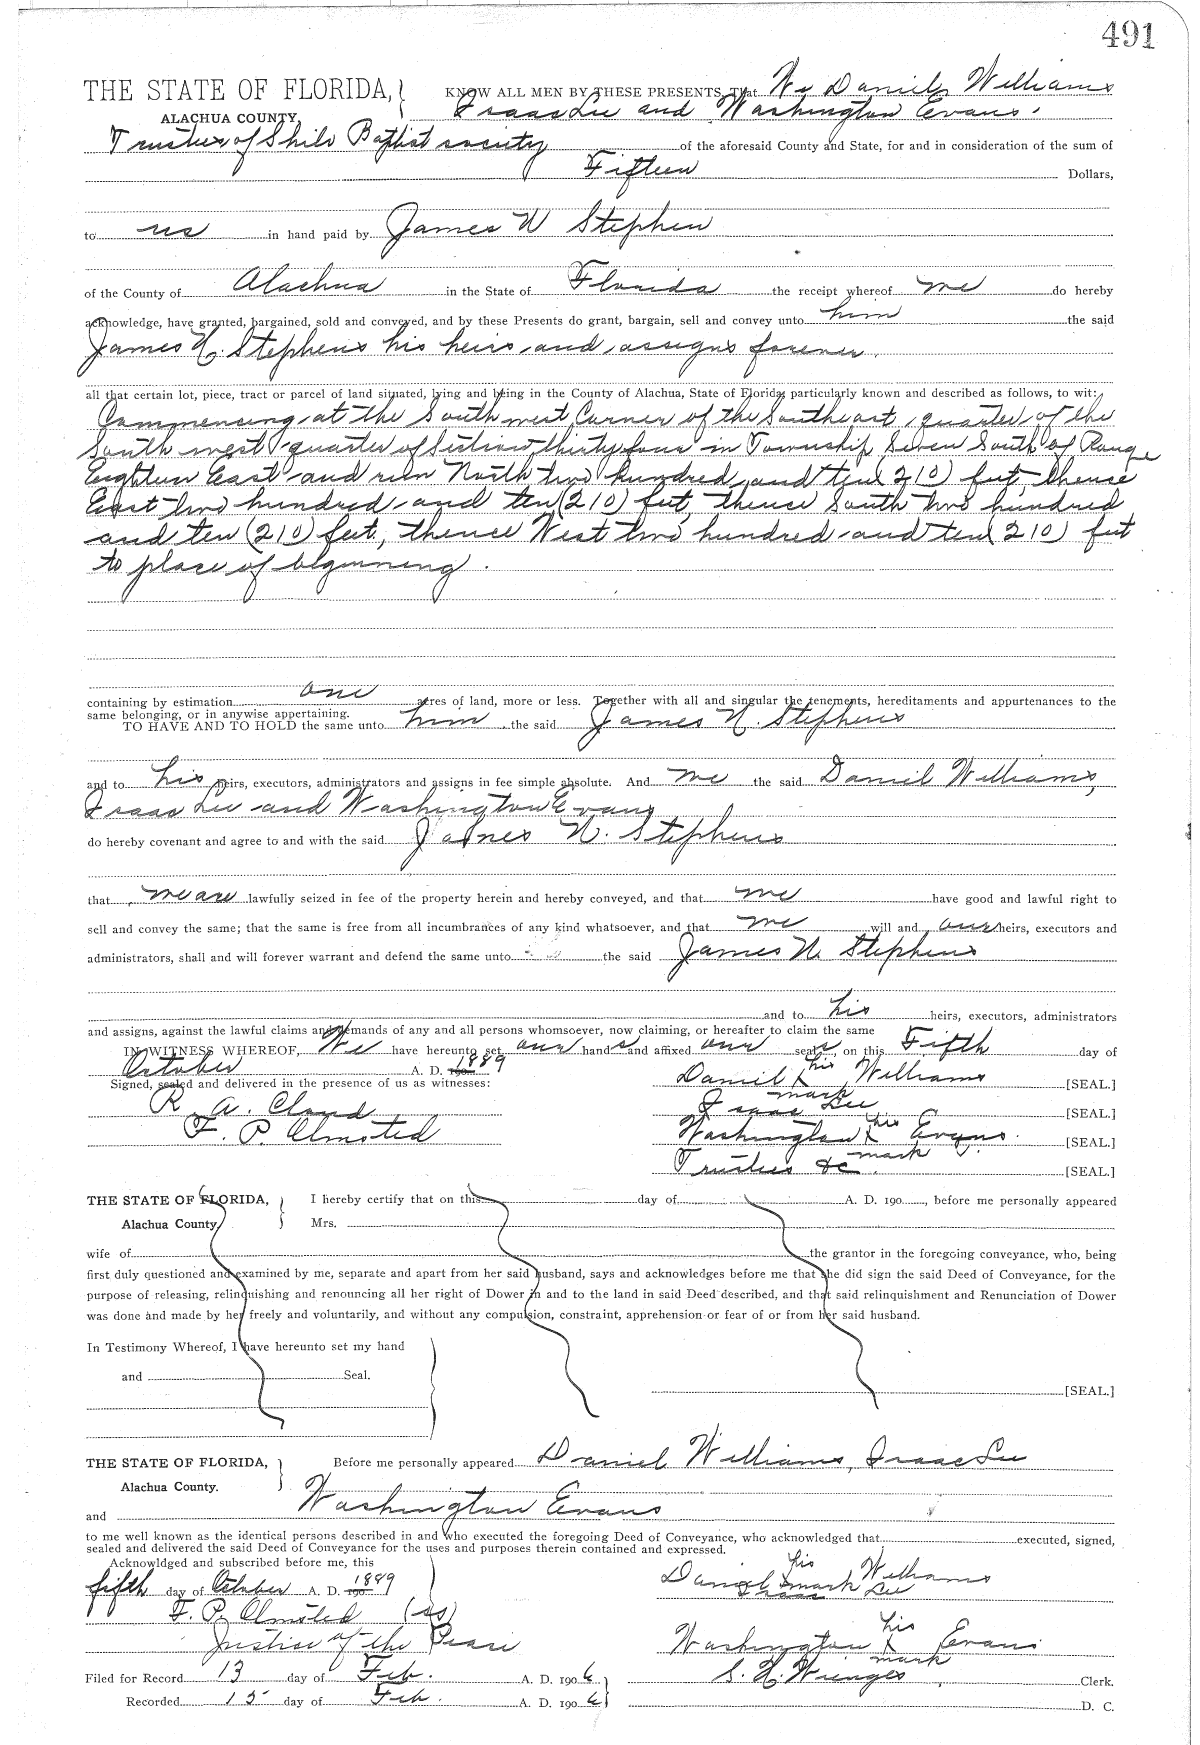 491
THE STATE OF FLORIDA, KNOW ALL MEN BY THESE PRESENTS, That We Daniel Williams
ALACHUA COUNTY, Isaac Lee and Washington Evans.
Trustees of Shilo Baptist society of the aforesaid County and State, for and in consideration of the sum of
Fifteen Dollars,
to us in hand paid by James N Stephen
of the County of Alachua in the State of Florida the receipt whereof we do hereby
acknowledge, have granted, bargained, sold and conveyed, and by these Presents do grant, bargain, sell and convey unto him the said
James N. Stephens his heirs and assigns forever.
all that certain lot, piece, tract or parcel of land situated, lying and being in the County of Alachua, State of Florida, particularly known and described as follows, to wit:
Commencing at the South west Corner of the Southeast quarter of the
South west quarter of Section thirty four in Township Seven South of Range
Eighteen East and run North two hundred and ten (210) feet, thence
East two hundred and ten (210) feet, thence South two hundred
and ten (210) feet, thence West two hundred and ten (210) feet
to place of beginning.
containing by estimation one acres of land, more or less. Together with all and singular the tenements, hereditaments and appurtenances to the
same belonging, or in anywise appertaining.
TO HAVE AND TO HOLD the same unto him the said James N. Stephens
and to his heirs, executors, administrators and assigns in fee simple absolute. And we the said Daniel Williams,
Isaac Lee and Washington Evans
do hereby covenant and agree to and with the said James N. Stephens
that we are lawfully seized in fee of the property herein and hereby conveyed, and that we have good and lawful right to
sell and convey the same; that the same is free from all incumbrances of any kind whatsoever, and that we will and our heirs, executors and
administrators, shall and will forever warrant and defend the same unto the said James N. Stephens
and to his heirs, executors, administrators
and assigns, against the lawful claims and demands of any and all persons whomsoever, now claiming, or hereafter to claim the same
IN WITNESS WHEREOF, We have hereunto set our hands and affixed our seals, on this Fifth day of
October A. D. 190 1889
Signed, sealed and delivered in the presence of us as witnesses: Daniel his X mark Williams [SEAL.]
R. A. Cloud Isaac Lee [SEAL.]
F. P. Olmsted Washington his X mark Evans. [SEAL.]
Trustees &c. [SEAL.]
THE STATE OF FLORIDA, I hereby certify that on this day of A. D. 190 , before me personally appeared
Alachua County, Mrs.
wife of the grantor in the foregoing conveyance, who, being
first duly questioned and examined by me, separate and apart from her said husband, says and acknowledges before me that she did sign the said Deed of Conveyance, for the
purpose of releasing, relinquishing and renouncing all her right of Dower in and to the land in said Deed described, and that said relinquishment and Renunciation of Dower
was done and made by her freely and voluntarily, and without any compulsion, constraint, apprehension or fear of or from her said husband.
In Testimony Whereof, I have hereunto set my hand
and Seal.
[SEAL.]
THE STATE OF FLORIDA, Before me personally appeared Daniel Williams, Isaac Lee
Alachua County.
and Washington Evans
to me well known as the identical persons described in and who executed the foregoing Deed of Conveyance, who acknowledged that executed, signed,
sealed and delivered the said Deed of Conveyance for the uses and purposes therein contained and expressed.
Acknowldged and subscribed before me, this
fifth day of October A. D. 190 1889 Daniel his mark Williams
F. P. Olmsted (ss) Isaac Lee
Justice of the Peace Washington his X mark Evans
Filed for Record 13 day of Feb. A. D. 1906 S. H. Wienges Clerk.
Recorded 15 day of Feb. A. D. 1906 D. C.